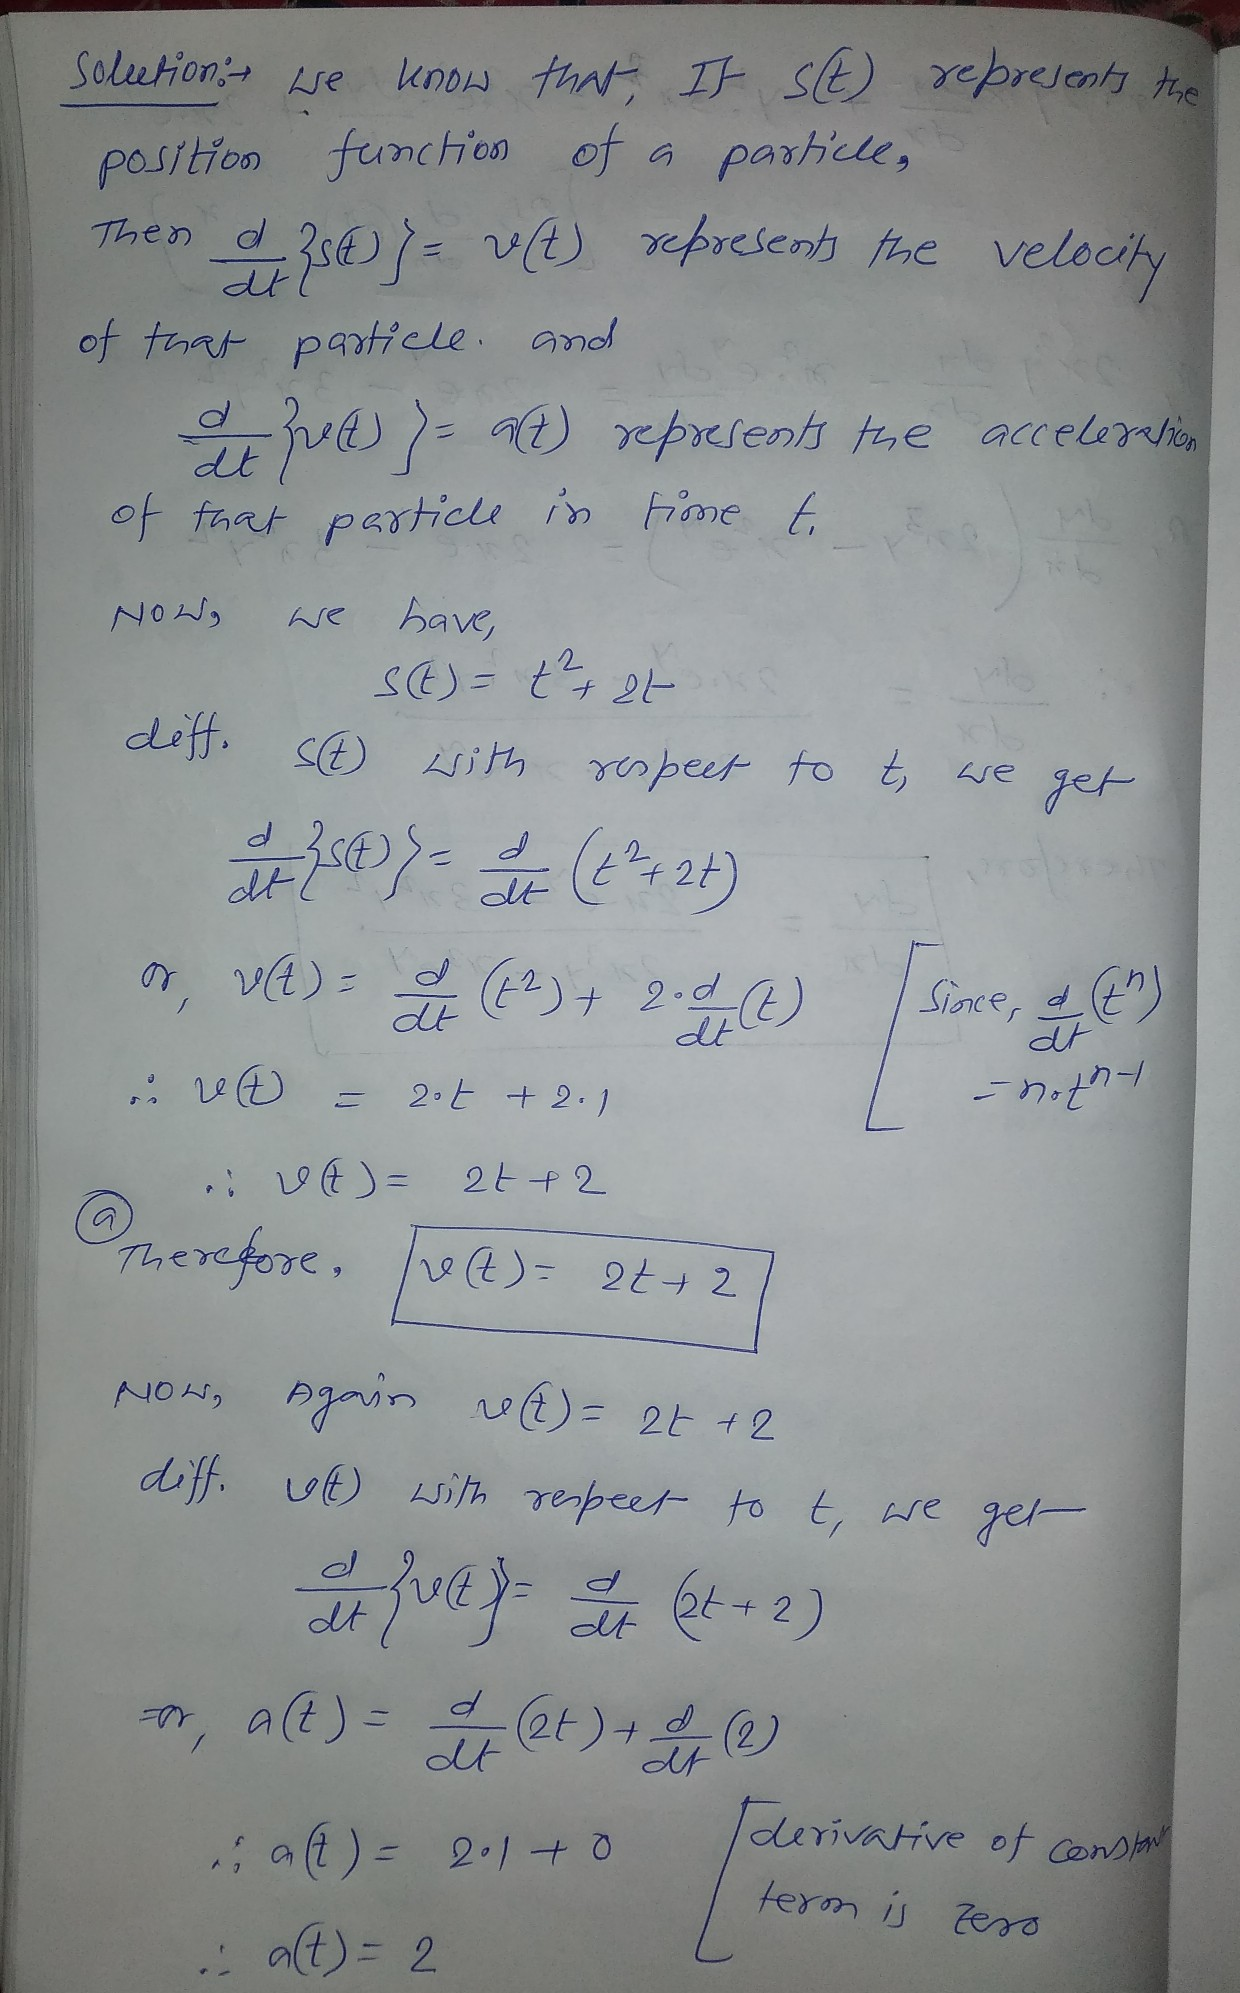 Solution:→ We know that, If S(t) represents the
position function of a particle,
Then d/dt {S(t)} = v(t) represents the velocity
of that particle. and
d/dt {v(t)} = a(t) represents the acceleration
of that particle in time t.
Now, we have,
S(t) = t² + 2t
diff. S(t) with respect to t, we get
d/dt {S(t)} = d/dt (t² + 2t)
or, v(t) = d/dt (t²) + 2·d/dt (t) [Since, d/dt (tⁿ)
= n·tⁿ⁻¹
∴ v(t) = 2·t + 2·1
∴ v(t) = 2t + 2
(a)
Therefore, v(t) = 2t + 2
Now, Again v(t) = 2t + 2
diff. v(t) with respect to t, we get
d/dt {v(t)} = d/dt (2t + 2)
=or, a(t) = d/dt (2t) + d/dt (2)
∴ a(t) = 2·1 + 0 [derivative of constant
term is zero
∴ a(t) = 2